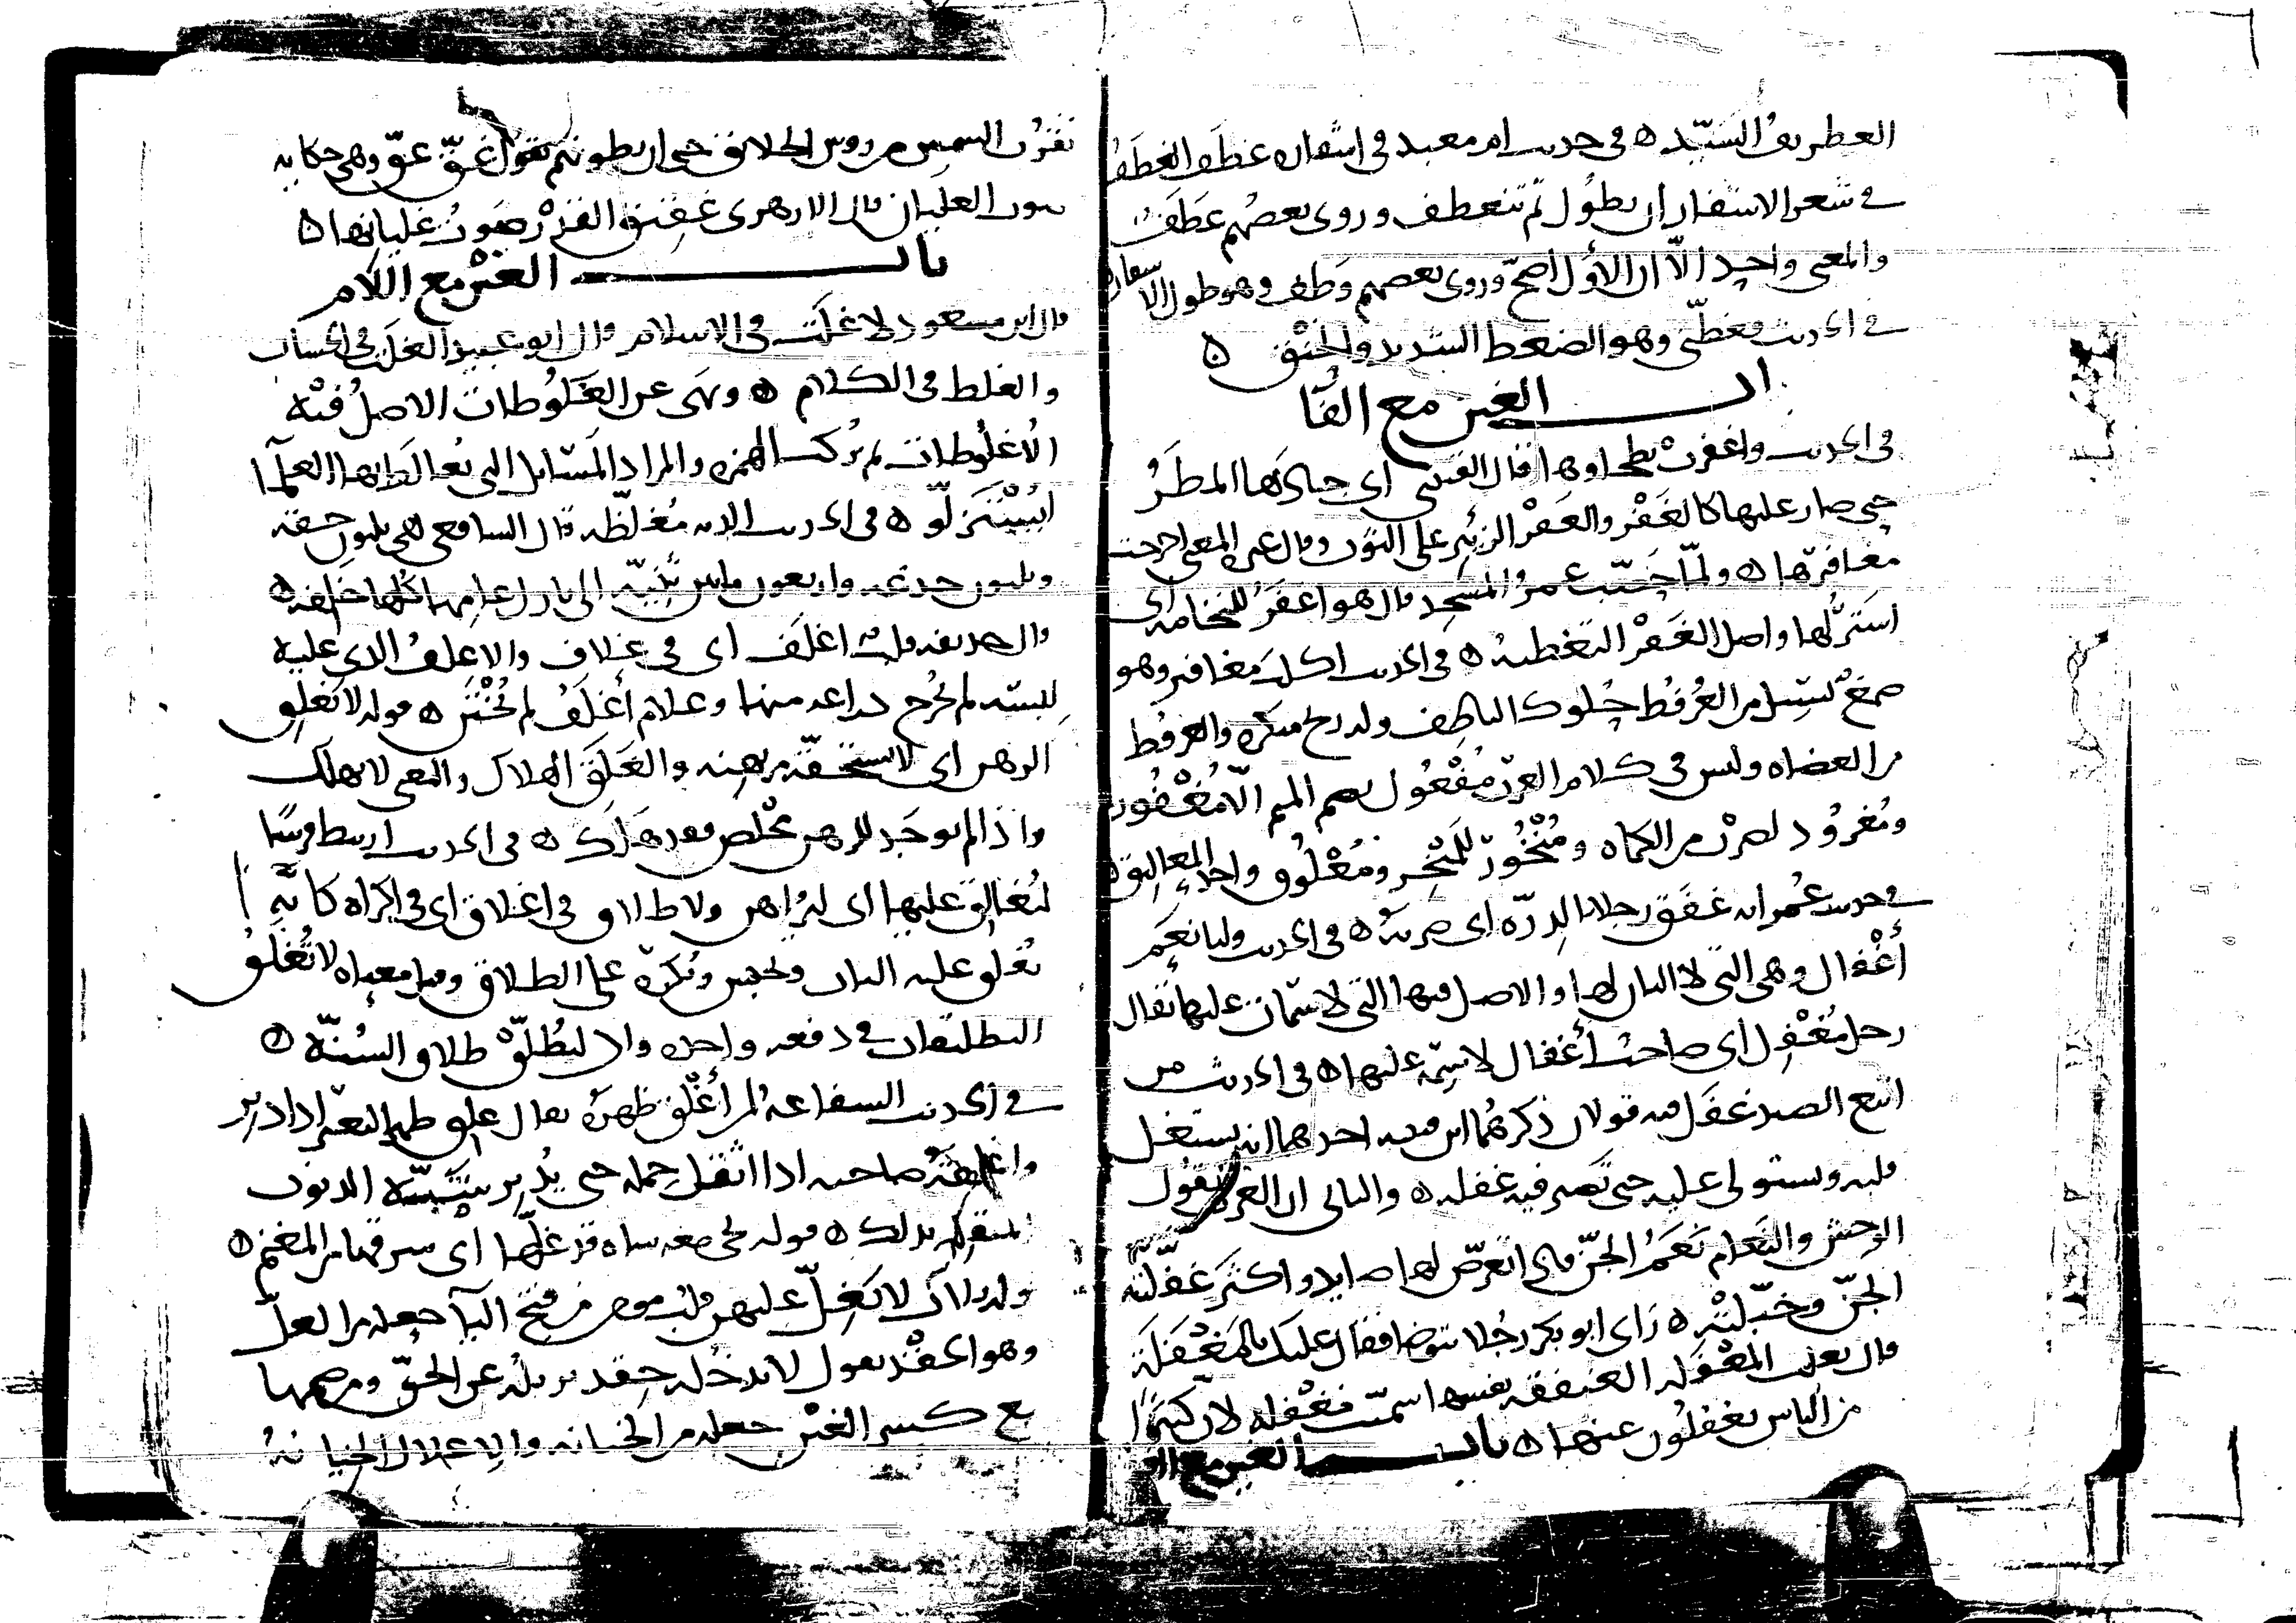 الغطريف السَيّد ۞ في حديث ام معبد في اشفاره غطَف الغطَفُ
في شعر الاشفار ان يطُول ثم تنعطف وروى بعضُهم عَطَفٌ
والمعنى واحد الّا ان الأوّل اصحّ وروى بعضهم وَطف وهو طول الاشفار
في الحديث فغطّني وهو الضغط الشديد والخنْق ۞
باب الغين مع الفَا
في الحديث واغفرتْ بطحاوها قال القتيبي اي جادَها المطَرُ
حتى صار عليها كالغَفْر والغَفْر الزئبِر على الثوب وقال غيره المعنى اخرجت
مغافرَها ۞ ولمّا حَصّبَ عمرُ المَسجِد قال هو اغفَرُ للنخامه اي
استَرُ لها واصل الغَفْر التغطية ۞ في الحديث اكلتَ مغافير وهو
صمغٌ يسيل من العُرفُط حُلو كالناطِف وله ريح منكره والعرفُط
من العضاه وليس في كلام العرب مُفْعُول بضم الميم الّا مُغْفُور
ومُغرُود لضرْب من الكماه ومُنْخُورٌ للمَنْخِر ومُعْلُوق واحد المعاليق ۞
في حديث عُمر انه غفَق رجلا بالدِرّه اي ضربَهُ ۞ في الحديث ولنا نَعَم
أغْفال وهي التي لا البان لها والاصل فيها التي لا سِمات عليها يقال
رجل مُغْفِل اي صاحبُ أغفال لا سِمَة عليها ۞ في الحديث من
اتبع الصيد غفَل فيه قولان ذكرهُما ابن قتيبه احدهما انه يشتغل
قلبه ويستولي عليه حتى تصير فيه غفله ۞ والثاني ان العرب تقول
الوحش والنَعَام نَعَمُ الجنّ فاذا تعرّض لها صايد واكثر غفّلَتْه
الجنّ وخبّلتْه ۞ رَاى ابو بكر رجُلا يتوضا فقال عليك بالمَغْفَلَة
قال ثعلب المَغْفَله العنفقه نفسها سمّيت مَغفَله لان كثيرًا
من الناس يغفلُون عنها ۞ باب الغين مع القاف
تَقرُب الشمس من روس الخلائق حتى ان بطونهم تقول غِقّ غِقّ وهي حكاية
صوت الغليان قال الازهري غَقِيق القِدْر صَوتُ غليانها ۞
باب الغين مع اللام
قال ابن مسعود لا غلَت في الاسلام قال ابو عبيد الغلَت في الحساب
والغلط في الكلام ۞ ونهَى عن الغَلُوطات الاصلُ فيه
الأغلُوطات ثم تُركت الهمزه والمراد المَسَايل التي يُغالَط بها العلمآ
ليُسْتَزَلّو ۞ في الحديث الديه مُغلّظه قال الشافعي هي ثلثون حِقّه
وثلثون جذعه واربعون مابين ثَنِيّه الى بازل عامها كلُها خَلِفه ۞
قال حذيفه قلب اغلَف اي في غلاف والاغلفُ الذي عليه
لبسَه لم يُخرج ذراعه منها وغلام أغلَفُ لم يُختَن ۞ قوله لا يَغلَق
الرهن اي لا يستحقّه مرتهنه والغَلَق الهلاك والمعنى لا يهلك
واذا لم يوجَد للرهن مخْلَص فقد هَلَك ۞ في الحديث ارتبط فرسًا
ليُغالِق عليها اي ليُراهن ولا طلاق في اغلاق اي في اكراه كانّه
يُغلق عليه الباب ويُحبس ويُكرَه على الطلاق وقيل معناه لا تُغلَقُ
التطليقات في دفعه واحده ولا ليُطلّق طلاق السُنّة ۞
في الحديث الشفاعه لمن أغْلَق ظهرَهُ يقال غلِق ظهر البعير اذا دَبِر
واغلقَهُ صاحبه اذا اثقل حمله حتى يَدبر شَبّه الذنوب
المثقله بذلك ۞ قوله يجي معه شاه قد غلّها اي سرقها من المغنم ۞
وله ثلاث لا يَغِلّ عليهن قلب مومن من فتح اليآ جعله من الغِلّ
وهو الحقد يقول لا يدخله حِقد يزيله عن الحقّ ومن ضمها
مع كسر الغين جعله من الخيانه والإغلال الخيانةُ